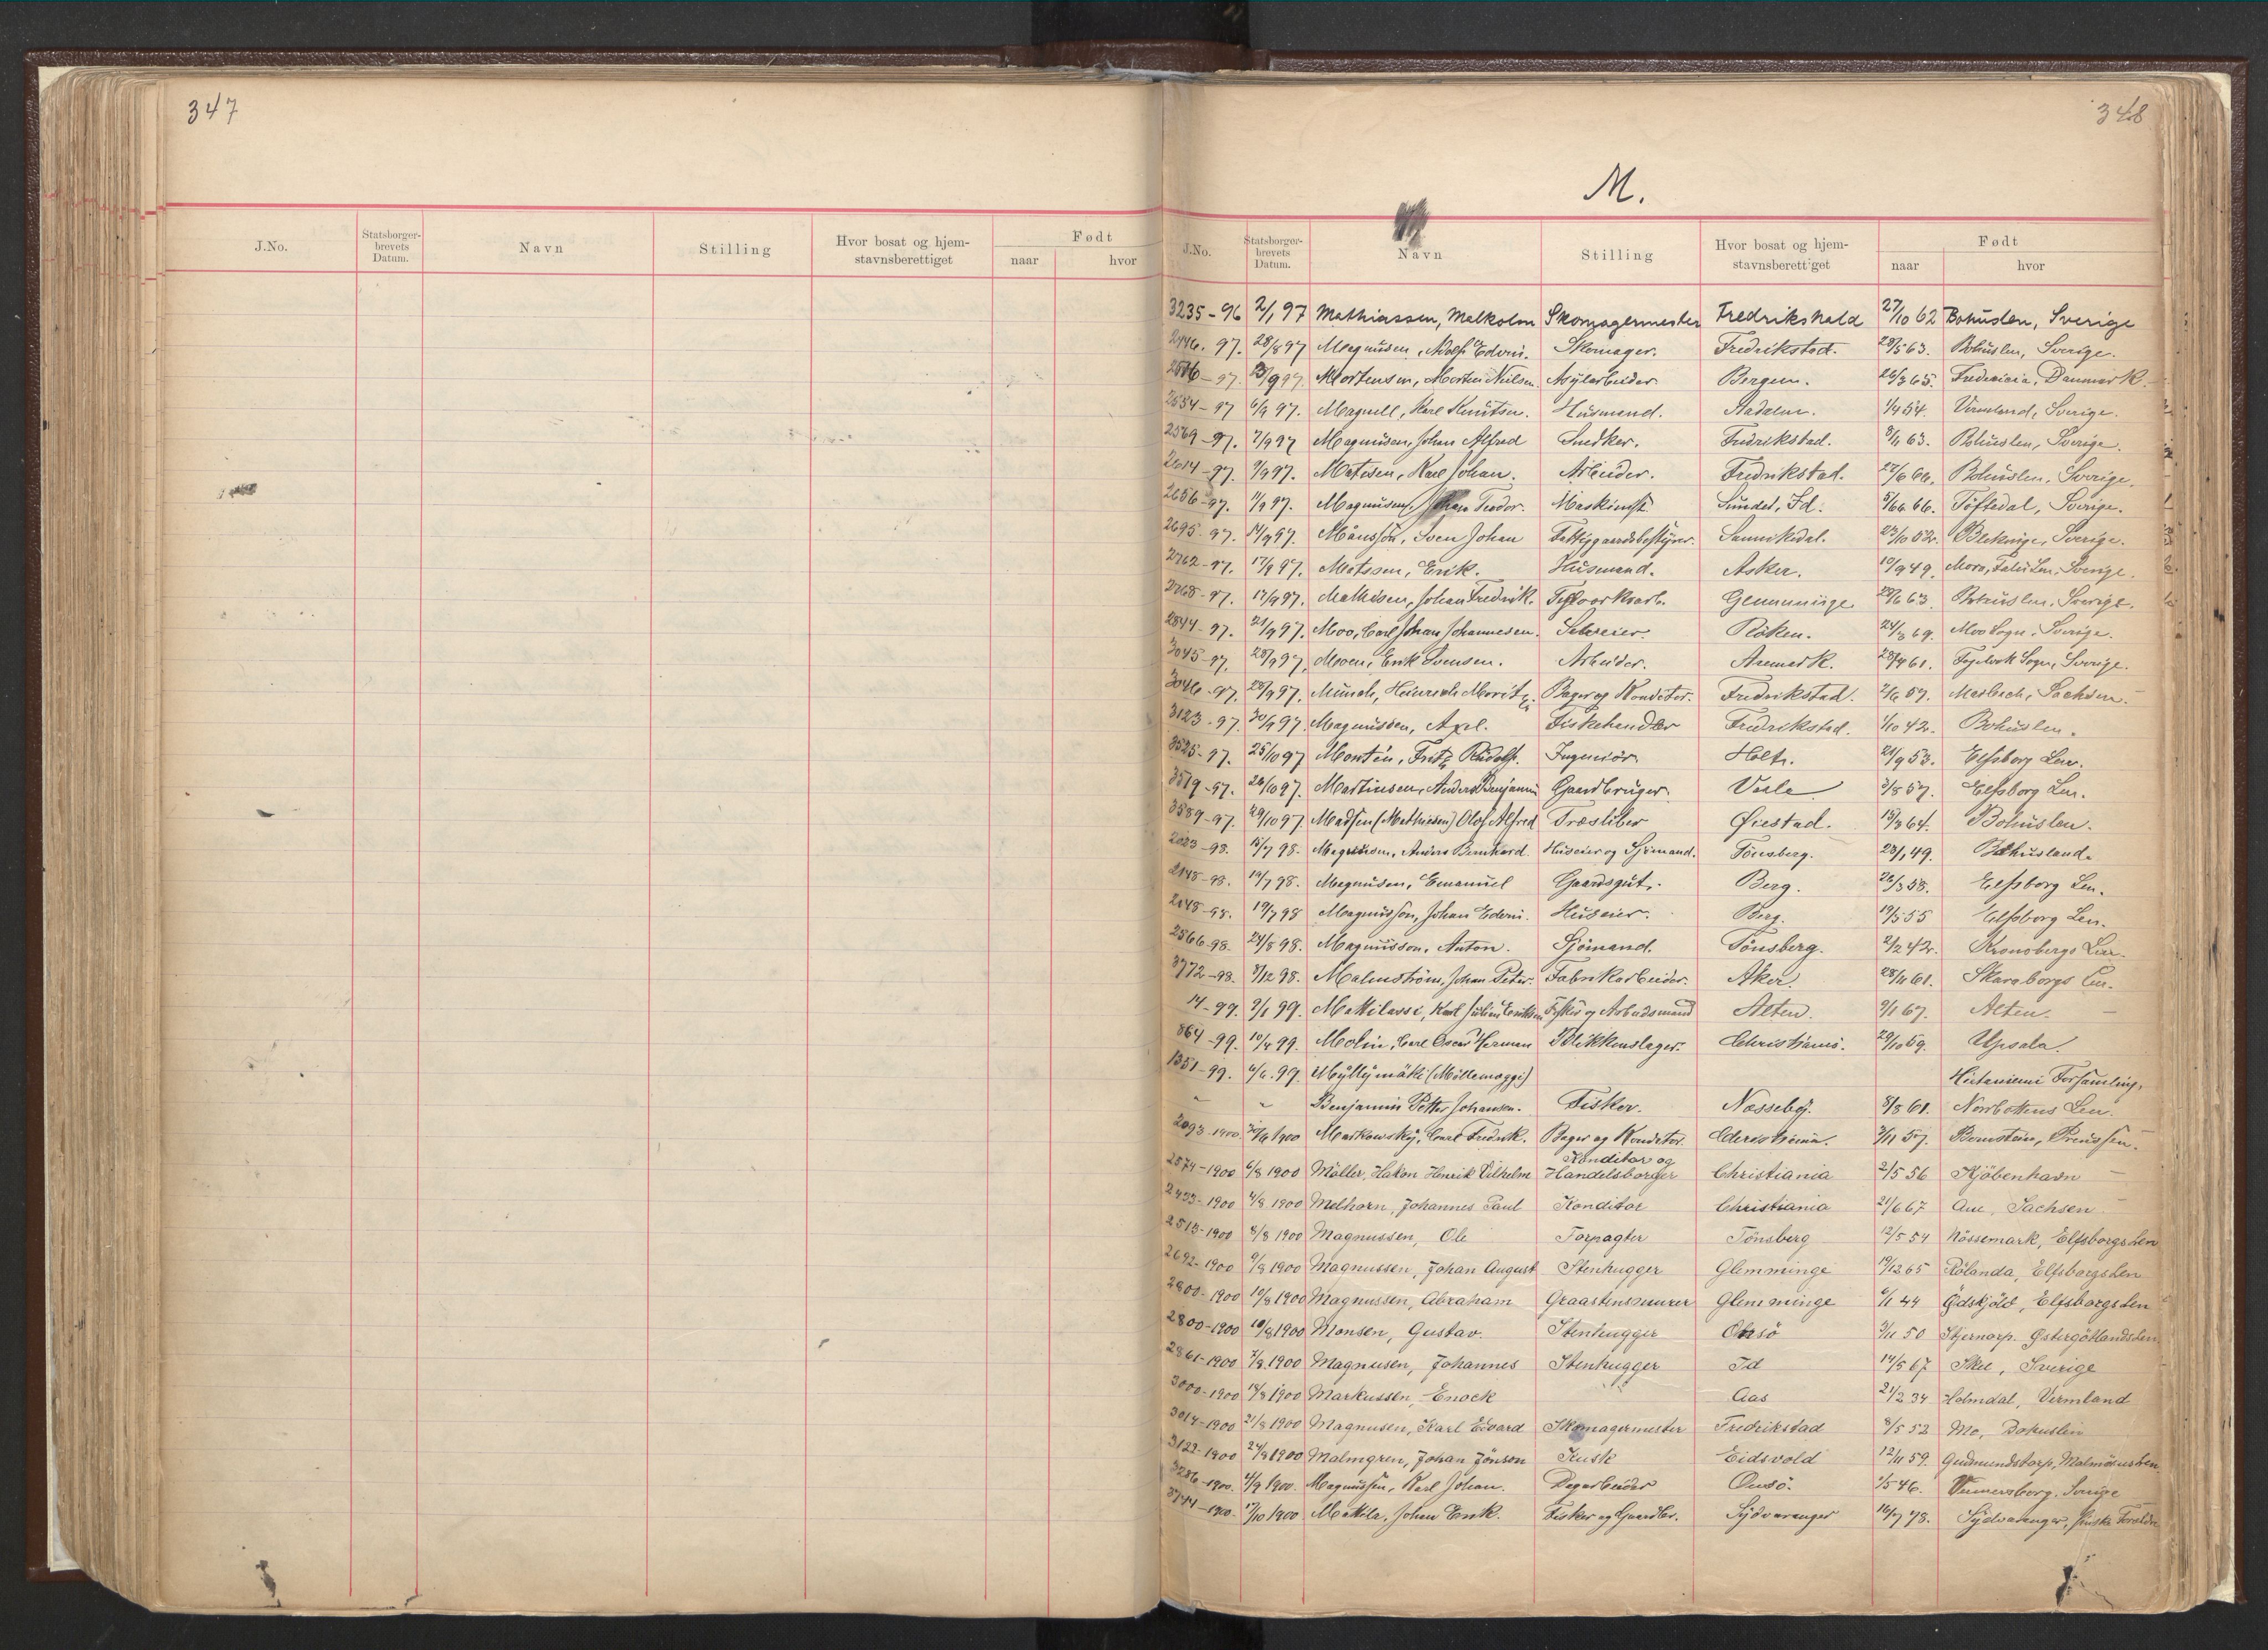 347
J.No.
Statsborger-
brevets
Datum.
Navn
Stilling
Hvor bosat og hjem-
stavnsberettiget
Født
naar
hvor
348
M.
J.No.
Statsborger-
brevets
Datum.
Navn
Stilling
Hvor bosat og hjem-
stavnsberettiget
Født
naar
hvor
3235-96 2/1 97 Mathiassen, Malkolm Skomagermester Fredrikshald 27/10 62 Bohuslen, Sverige
97. 28/8 97 Magnusen, Adolf Edvin. Skomager. Fredrikstad. 28/5 63. Bohuslen, Sverige.
97. Mortensen, Morten Nielsen. Asylarbeider. Bergen. 26/3 65. Fredericia, Danmark.
2554-97 6/9 97. Magnell, Karl Knutsen. Husmand. Aadalen. 1/4 54. Vermland, Sverige.
2569-97. 7/9 97 Magnusen, Johan Alfred Snedker. Fredrikstad. 8/1 63. Bohuslen, Sverige.
2614-97. 9/9 97. Matisen, Karl Johan. Arbeider. Fredrikstad. 27/6 66. Bohuslen, Sverige.
2656-97. 11/9 97. Magnusen, Johan Teodor. Maskinist. Sundet, Id. 5/6 66. Töftedal, Sverige.
2695-97. 14/9 97. Månsson, Sven Johan Fattiggaardsbestyrer. Sannikedal. 23/10 52. Blekinge, Sverige.
2762-97. 17/9 97. Matsson, Erik. Husmand. Asker. 10/9 49. Mora, Falu Len, Sverige.
2768-97. 17/9 97. Mathisen, Johan Fredrik. Glemminge 28/6 63. Bohuslen, Sverige.
2844-97. 21/9 97. Moo, Carl Johan Johannesen. Röken. 24/3 69. Moo Sogn, Sverige.
3045-97. 28/9 97. Moen, Erik Svensen. Arbeider. Aremark. 28/4 61. Fogelvik Sogn, Sverige.
3046-97. 28/9 97. Münch, Heinrich Moritz. Bager og Konditor. Fredrikstad. 2/6 59. Sachsen.
3123-97. 30/9 97. Magnussen, Axel. Fiskehandler Fredrikstad. 1/10 42. Bohuslen.
3525-97. 25/10 97 Montén, Fritz Rudolf. Ingeniör. Holt. 21/9 53. Elfsborg Len.
3579-97. 28/10 97. Martinsen, Anders Benjamin Gaardbruger. Vaale 3/8 57. Elfsborg Len.
3589-97. 29/10 97. Madsen (Mathiesen) Olof Alfred Træsliber Øiestad. 15/3 64. Bohuslen.
2023-98. 15/7 98. Magnussen, Anders Bernhard. Huseier og Sjømand. Tönsberg. 28/1 49. Bohusland.
2148-98. 19/7 98. Magnusen, Emanuel Gaardsgut. Berg. 28/3 58. Elfsborg Len.
2148-98. 19/7 98 Magnusson, Johan Edvin. Huseier. Berg. 19/5 55 Elfsborg Len.
2566-98. 24/8 98. Magnusson, Anton. Sjömand. Tönsberg. 2/2 42. Kronobergs Len.
3772-98. 8/12 98. Malmström, Johan Peter. Fabrikarbeider. Aker. 28/11 61. Skaraborgs Len.
14-99. 9/1 99. Mattilassi, Karl Julius Eriksen Fisker og Arbeidsmand Alten. 9/1 67. Alten.
864-99. 10/4 99. Molin, Carl Oscar Herman Blikkenslager. Christiania. 29/10 59. Upsala.
1351-99. 6/6. 99. Myllymäki (Möllemaggi) Hietaniemi Forsamling,
" " Benjamin Petter Johansen. Fisker. Næsseby. 8/8 61. Norrbottens Len.
2093-1900. 30/6 1900 Markowsky, Carl Fredrik. Bager og Konditor. Christiania. 3/11 57. Preussen.
2574-1900 6/8 1900 Müller, Hakon Henrik Vilhelm Konditor og
Handelsborger Christiania 2/5 56 Kjöbenhavn
2433-1900 4/8 1900 Melhorn, Johannes Paul Konditor Christiania 21/6 67 Aue, Sachsen
2513-1900 8/8 1900 Magnussen, Ole Forpagter Tönsberg 12/5 54 Nössemark, Elfsborgs Len
2692-1900 9/8 1900 Magnussen, Johan August Stenhugger Glemminge 19/12 65 Rölanda, Elfsborgs Len
2800-1900 10/8 1900 Magnussen, Abraham Graastensmurer Glemminge 6/1 44 Ödskjöld, Elfsborgs Len
2800-1900 10/8 1900 Monsen, Gustav. Stenhugger Onsö 3/11 50 Stjernorp. Östergötlands Len
2861-1900 7/8 1900 Magnusen, Johannes Stenhugger Id 14/5 67 Skee, Sverige
3000-1900 18/8 1900 Markussen, Enock Aas 21/2 34 Holmdal, Vermland
3014-1900 21/8 1900 Magnusen, Karl Edvard Skomagermester Fredrikstad 8/5 52 Mo, Bohuslen
3122-1900 24/8 1900 Malmgren, Johan Jönson Kusk Eidsvold 12/11 59. Gudmundstorp, Malmöhus Len
3286-1900. 4/9 1900. Magnussen, Karl Johan. Dagarbeider Onsö. 1/5 46. Venersborg, Sverige
3744-1900. 17/10 1900 Mattila, Johan Erik. Fisker og Gaardbr. Sydvaranger 16/7 78. Sydvaranger, finske Forældre